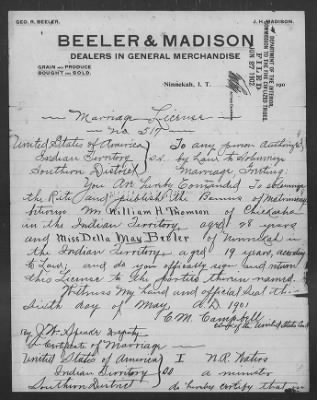 GEO. R. BEELER.
J. H. MADISON.
BEELER & MADISON
DEALERS IN GENERAL MERCHANDISE
GRAIN AND PRODUCE
BOUGHT AND SOLD.
Ninnekah, I. T. 190
DEPARTMENT OF THE INTERIOR,
COMMISSION TO THE FIVE CIVILIZED TRIBES.
FILED
JUN 27 1902
Marriage License
No 517
United States of America
Indian Territory
Southern District
ss.
To any person authorized
by Law to Solemnize
Marriage, Greeting.
You Are hereby Commanded To Solemnize
the Rite and publish the Banns of Matrimony
between Mr William H. Thomson of Chickasha
in the Indian Territory aged 48 years
and Miss Della May Beeler of Ninnekah in
the Indian Territory aged 19 years, according
to Law, and do you officially sign and return
this License to the parties therein named.
Witness My hand and official Seal this
day of May A.D 1901
C.M. Campbell
Clerk of the United States Court
By J.W. Speake Deputy
Certificate of Marriage
United States of America
Indian Territory
Southern District
I N.R. Waters
a minister
do hereby certify that on